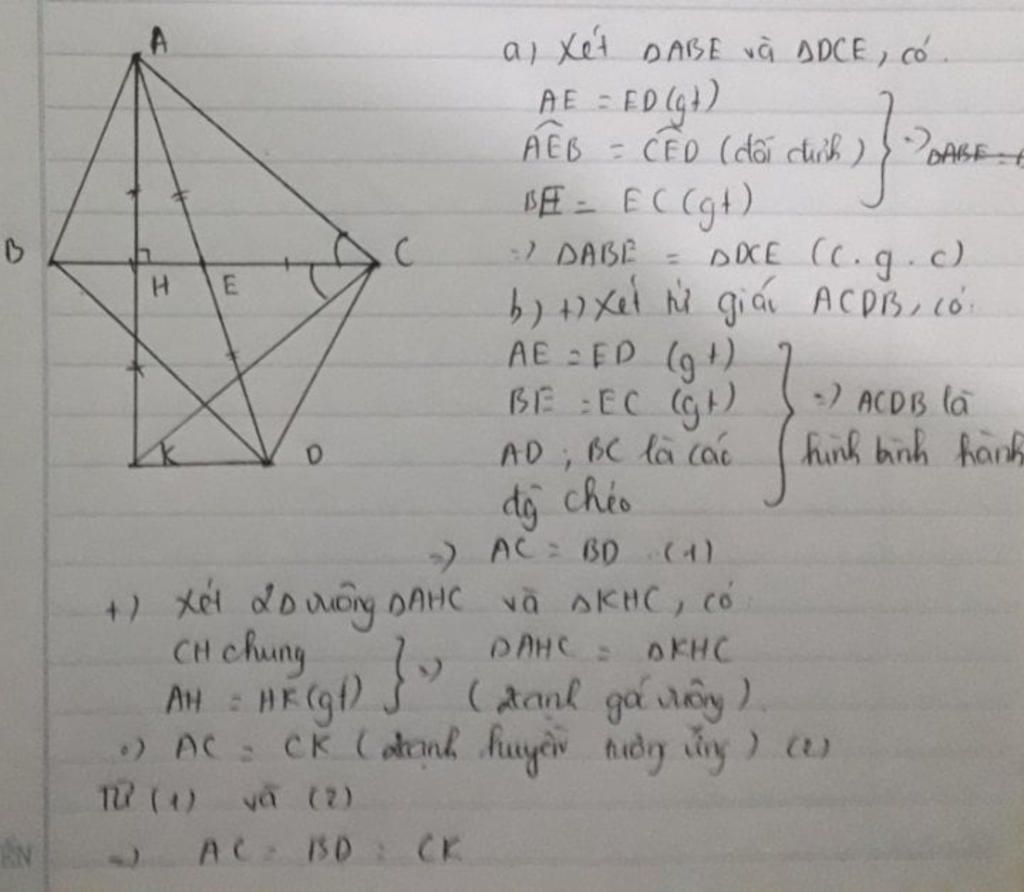 A
B
C
H
E
K
D
a) Xét ΔABE và ΔDCE, có
AE = ED (gt)
AÊB = CÊD (đối đỉnh)
=> ΔABE =
BE = EC (gt)
=> ΔABE = ΔDCE (c.g.c)
b) +) Xét tứ giác ACDB, có:
AE = ED (gt)
BE = EC (gt) => ACDB là
AD ; BC là các hình bình hành
đg chéo
=> AC = BD (1)
+) Xét 2Δ vuông ΔAHC và ΔKHC, có
CH chung => ΔAHC = ΔKHC
AH = HK (gt) vuông)
=> AC = CK (cạnh huyền tương ứng) (2)
Từ (1) và (2)
=> AC = BD = CK